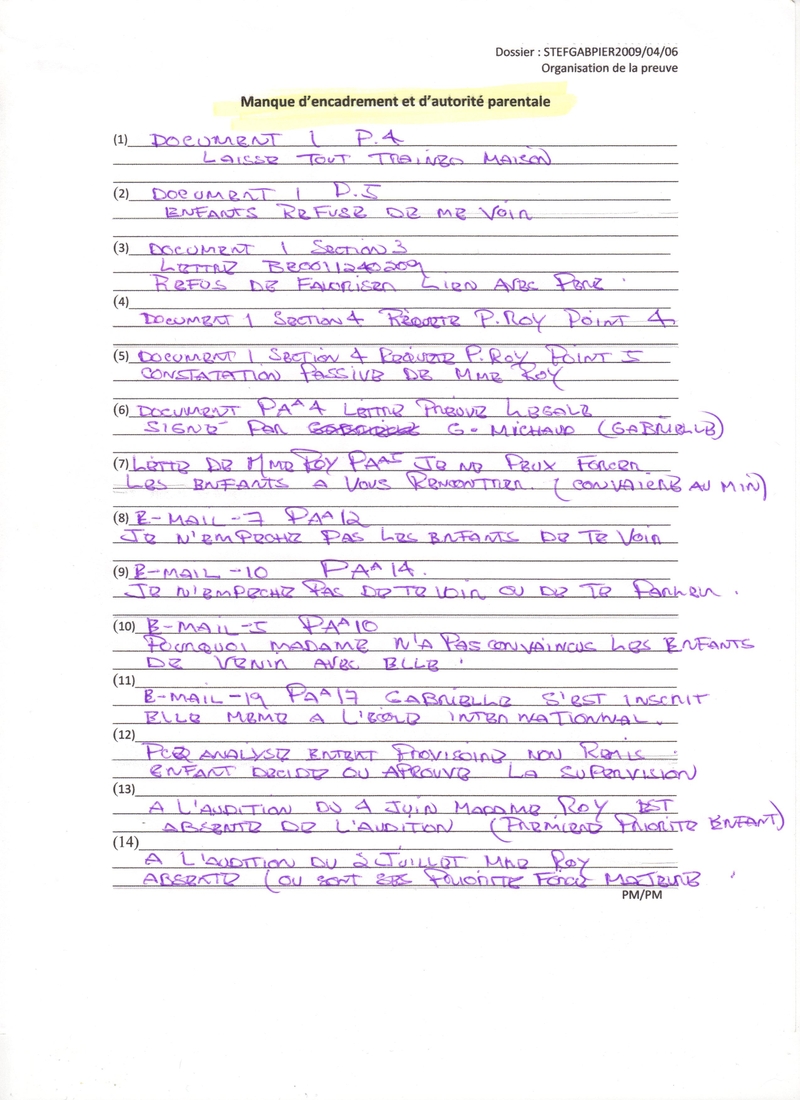 Dossier : STEFGABPIER2009/04/06
Organisation de la preuve
Manque d'encadrement et d'autorité parentale
(1) DOCUMENT 1 P.4
LAISSE TOUT TRAINER MAISON
(2) DOCUMENT 1 P.5
ENFANTS REFUSE DE ME VOIR
(3) DOCUMENT 1 SECTION 3
LETTRE BE0011240209
REFUS DE FAVORISER LIEN AVEC PERE .
(4)
DOCUMENT 1 SECTION 4 REQUETE P. ROY POINT 4
(5) DOCUMENT 1 SECTION 4 REQUETE P. ROY POINT 5
CONSTATATION PASSIVE DE MME ROY
(6) DOCUMENT PA^4 LETTRE PREUVE LEGALE
SIGNÉ PAR G. MICHAUD (GABRIELLE)
(7) LETTE DE MME ROY PA^5 JE NE PEUX FORCER
LES ENFANTS A VOUS RENCONTRER. (CONVAIERE AU MIN)
(8) E-MAIL-7 PA^12
JE N'EMPECHE PAS LES ENFANTS DE TE VOIR
(9) E-MAIL-10 PA^14.
JE N'EMPECHE PAS DE TE VOIR OU DE TE PARLER .
(10) E-MAIL-5 PA^10
POURQUOI MADAME N'A PAS CONVAINCUS LES ENFANTS
DE VENIR AVEC ELLE .
(11)
E-MAIL-19 PA^17 GABRIELLE S'EST INSCRIT
ELLE MEME A L'ECOLE INTERNATIONNAL.
(12)
ANALYSE PROVISOIRE NON REMIS
ENFANT DECIDE OU APROUVE LA SUPERVISION
(13)
A L'AUDITION DU 4 JUIN MADAME ROY EST
ABSENTE DE L'AUDITION (PREMIERE PRIORITE ENFANT)
(14)
A L'AUDITION DU 2 JUILLET MME ROY
ABSENTE (OU SONT SES PRIORITE FORCE MAJEURE .
PM/PM